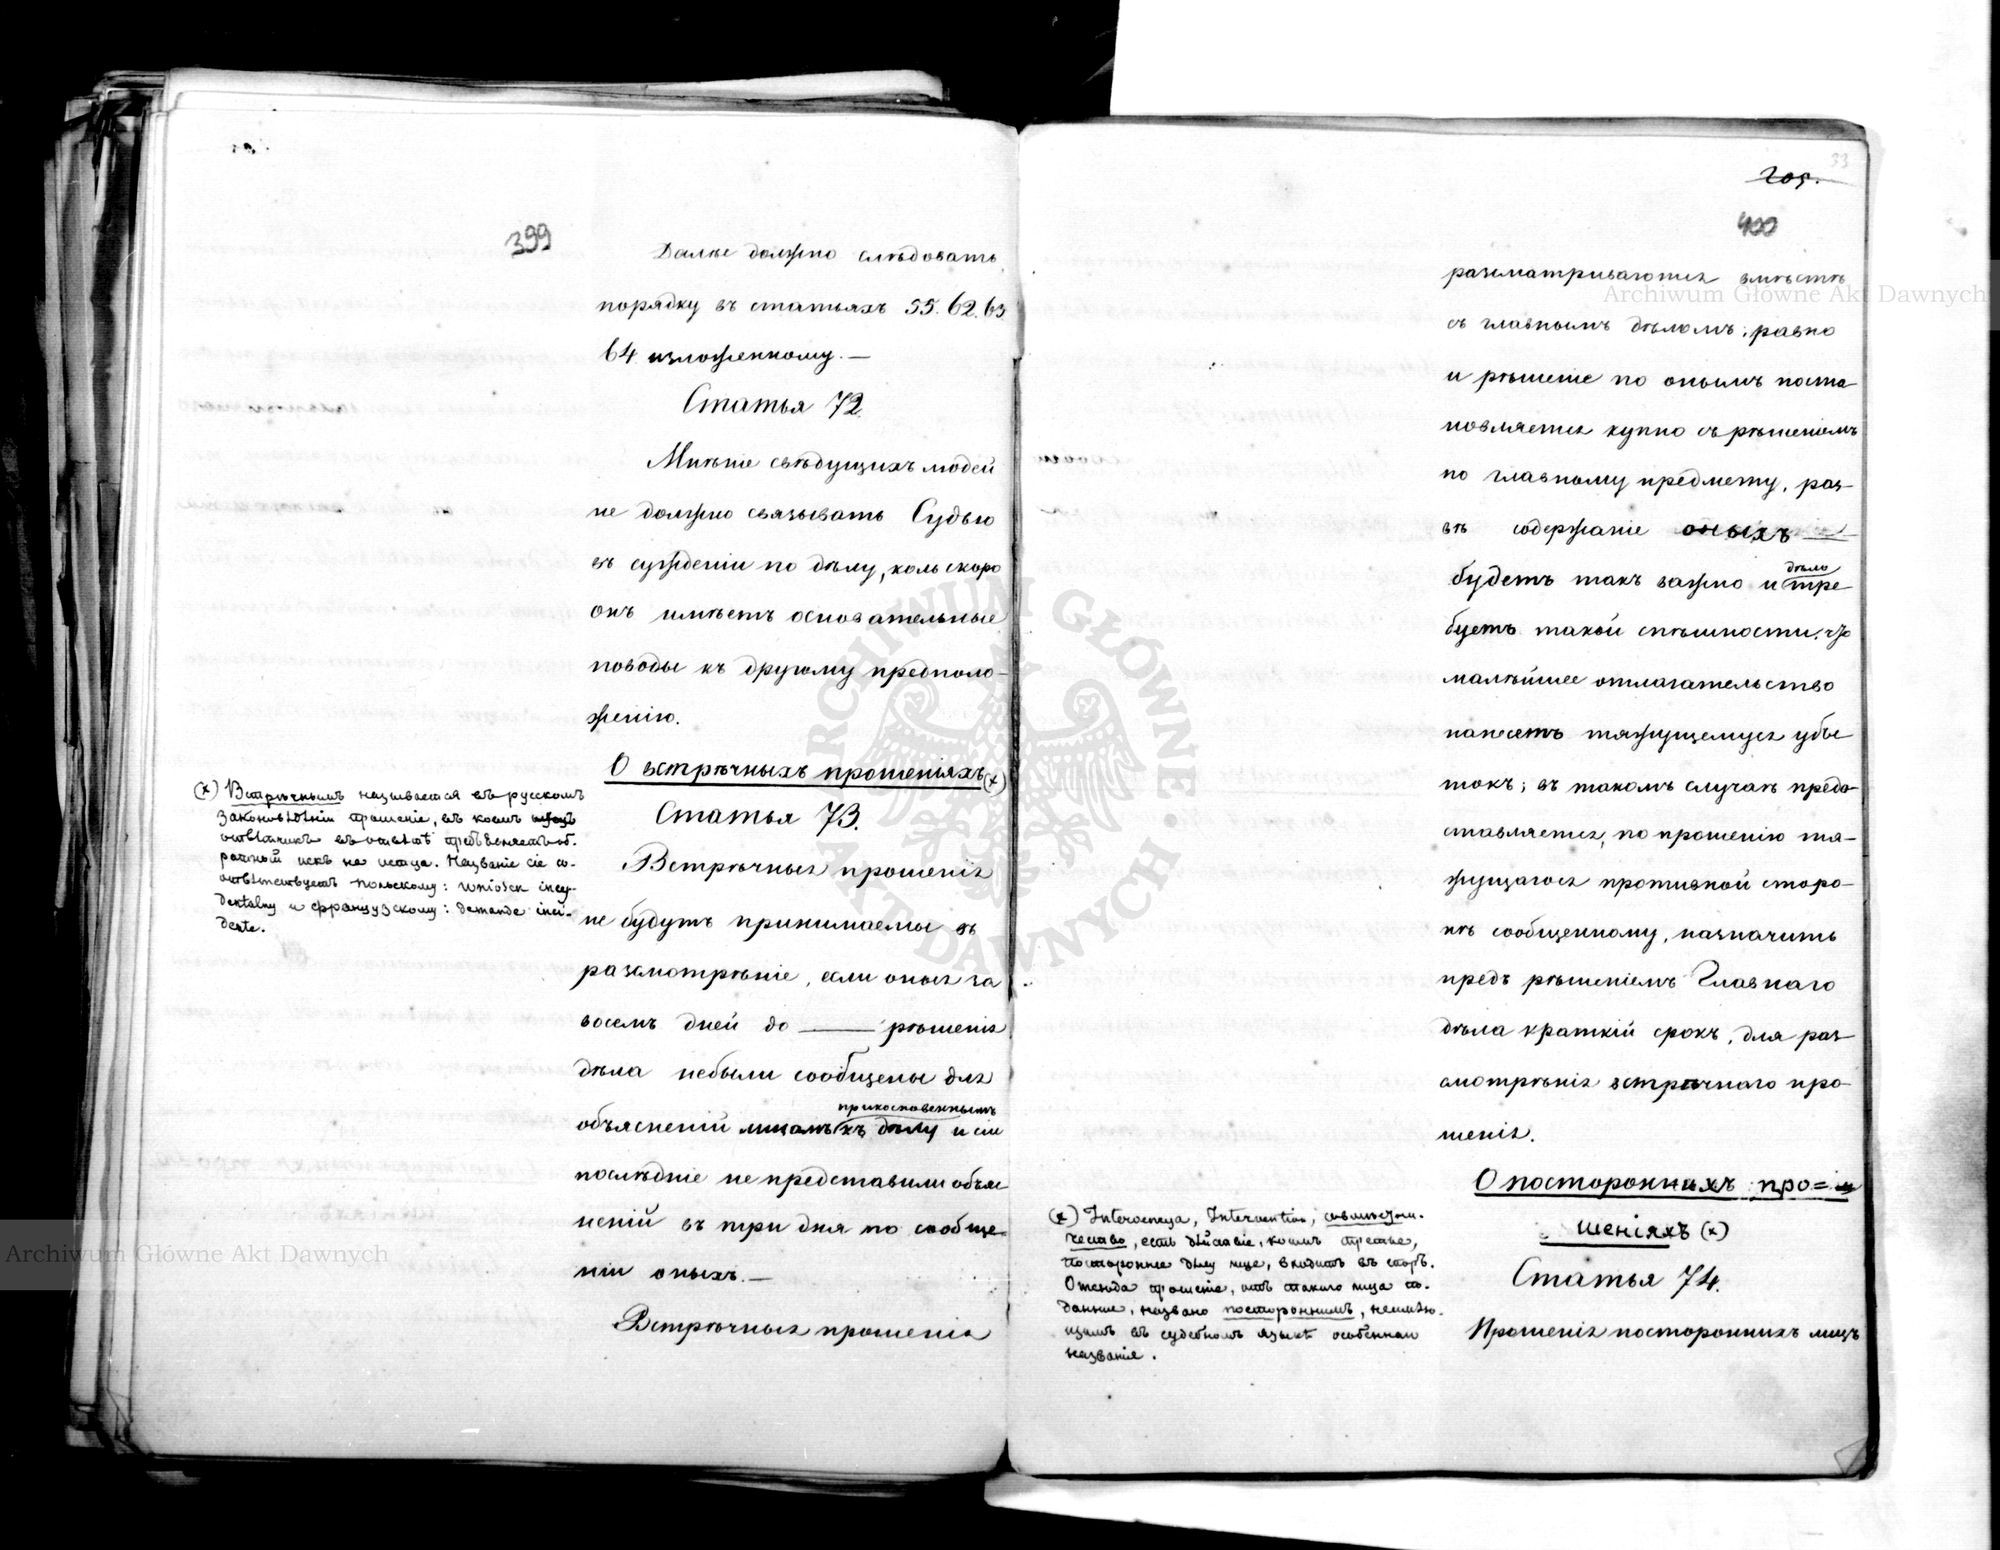 399
Далѣе должно слѣдовать
порядку въ статьяхъ 55. 62. 63
64 изложенному. —
Статья 72.
Мнѣніе свѣдущихъ людей
не должно связывать Судью
въ сужденіи по дѣлу, коль скоро
онъ имѣетъ основательные
поводы къ другому предполо-
женію.
О встрѣчныхъ прошеніяхъ (x)
Статья 73.
Встрѣчныя прошенія
не будутъ принимаемы въ
разсмотрѣніе, если оныя за
восемь дней до —— рѣшенія
дѣла небыли сообщены для
прикосновеннымъ
объясненій лицамъ къ дѣлу и сіи
послѣдніе не представили объяс
неній въ три дня по сообще-
ніи оныхъ. —
Встрѣчныя прошенія
(x) Встрѣчнымъ называется въ русскомъ
законовѣдѣніи прошеніе, въ коемъ
отвѣтчикъ въ отвѣтѣ предъявляетъ об-
ратный искъ на истца. Названіе сіе со-
отвѣтствуетъ польскому: wniosek incy-
dentalny и французскому: demande inci-
dente.
33
205.
400
разсматриваются вмѣстѣ
съ главнымъ дѣломъ; равно
и рѣшеніе по онымъ поста
новляется купно съ рѣшеніемъ
по главному предмету, раз-
вѣ содержаніе оныхъ —
дѣло
будетъ такъ важно и тре-
буетъ такой спѣшности, что
малѣйшее отлагательство
нанесетъ тяжущемуся убы
токъ; въ такомъ случаѣ предо-
ставляется, по прошенію тя-
жущагося противной сторо-
нѣ сообщенному, назначить
предъ рѣшеніемъ Главнаго
дѣла краткій срокъ, для раз-
смотрѣнія встрѣчнаго про-
шенія.
О постороннихъ про=
шеніяхъ (x)
Статья 74.
Прошенія постороннихъ лицъ
(x) Intervencya, Intervention,
есть дѣйствіе, коимъ третье,
постороннее дѣлу лице, входитъ въ споръ.
Отсюда прошеніе, отъ такого лица по-
данное, названо постороннимъ, неимѣю-
щимъ въ судебномъ языкѣ особеннаго
названія.
Archiwum Główne Akt Dawnych
Archiwum Główne Akt Dawnych
ARCHIWUM GŁÓWNE AKT DAWNYCH